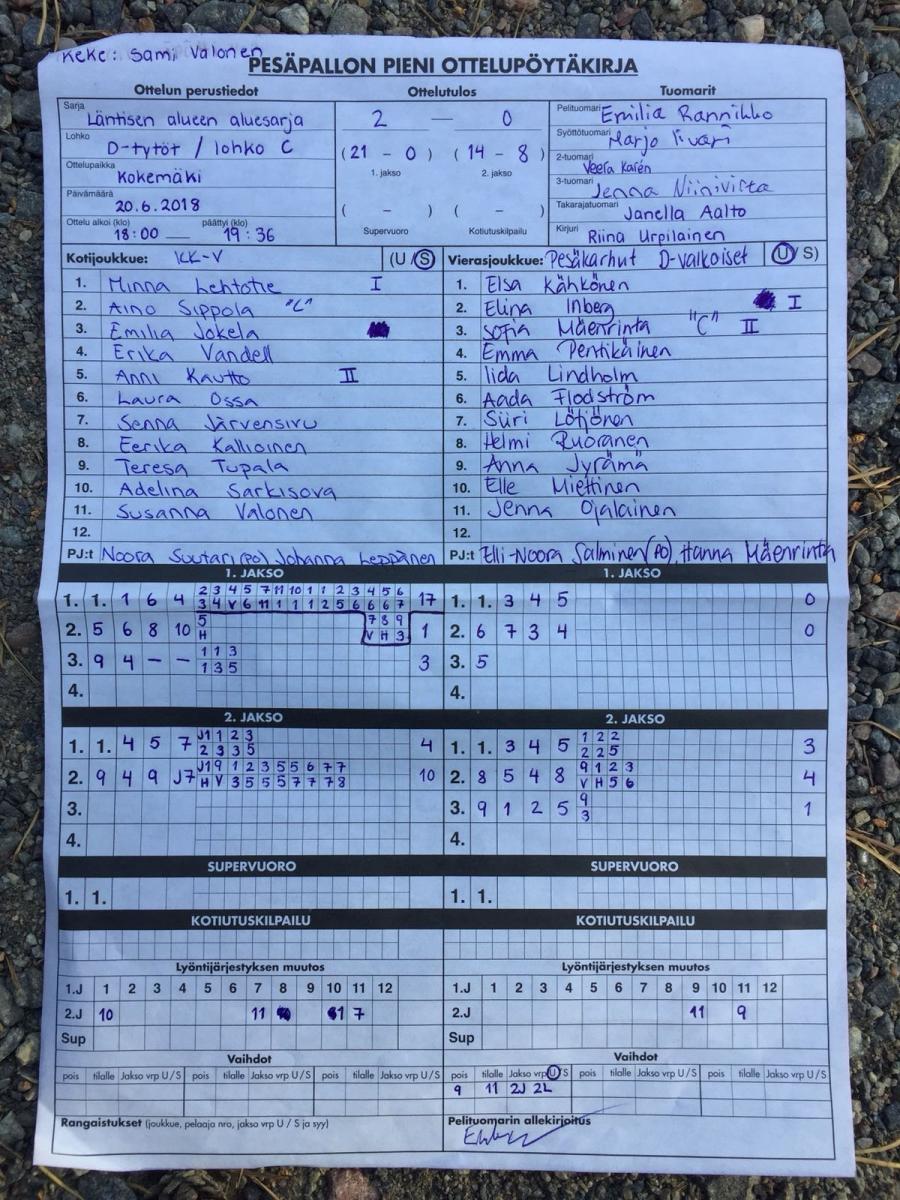 Keke: Sami Valonen
PESÄPALLON PIENI OTTELUPÖYTÄKIRJA
Ottelun perustiedot Ottelutulos Tuomarit
Sarja Läntisen alueen aluesarja
Lohko D-tytöt / lohko C
Ottelupaikka Kokemäki
Päivämäärä 20.6.2018
Ottelu alkoi (klo) 18:00 päättyi (klo) 19:36
2 — 0
(21 - 0) (14 - 8)
1. jakso 2. jakso
( - ) ( - )
Supervuoro Kotiutuskilpailu
Pelituomari Emilia Rannikko
Syöttötuomari Marjo Iivari
2-tuomari Veera Karén
3-tuomari Jenna Niinivirta
Takarajatuomari Janella Aalto
Kirjuri Riina Urpilainen
Kotijoukkue: KK-V (U / S)
1. Minna Lehtotie I
2. Aino Sippola "C"
3. Emilia Jokela
4. Erika Vandell
5. Anni Kautto II
6. Laura Ossa
7. Senna Järvensivu
8. Eerika Kallioinen
9. Teresa Tupala
10. Adelina Sarkisova
11. Susanna Valonen
12.
PJ:t Noora Suutari (PO) Johanna Leppänen
Vierasjoukkue: Pesäkarhut D-valkoiset (U / S)
1. Elsa Kähkönen
2. Elina Inberg I
3. Sofia Mäenrinta "C" II
4. Emma Pentikäinen
5. Iida Lindholm
6. Aada Flodström
7. Siiri Lötjönen
8. Helmi Ruoranen
9. Anna Jyrämä
10. Elle Miettinen
11. Jenna Ojalainen
12.
PJ:t Elli-Noora Salminen (PO), Hanna Mäenrinta
1. JAKSO
1. 1. 1 6 4 2 3 4 5 7 11 10 1 1 2 3 4 5 6 17
3 4 V 6 11 1 1 1 2 5 6 6 6 7
2. 5 6 8 10 5 7 8 9 1
H V H 3
3. 9 4 – – 1 1 3 3
1 3 5
4.
1. JAKSO
1. 1. 3 4 5 0
2. 6 7 3 4 0
3. 5
4.
2. JAKSO
1. 1. 4 5 7 J1 1 2 3 4
2 3 3 5
2. 9 4 9 J7 J1 9 1 2 3 5 5 6 7 7 10
H V 3 5 5 5 7 7 7 8
3.
4.
2. JAKSO
1. 1. 3 4 5 1 2 2 3
2 2 5
2. 8 5 4 8 9 1 2 3 4
V H 5 6
3. 9 1 2 5 9 1
3
4.
SUPERVUORO SUPERVUORO
1. 1. 1. 1.
KOTIUTUSKILPAILU KOTIUTUSKILPAILU
Lyöntijärjestyksen muutos
1.J 1 2 3 4 5 6 7 8 9 10 11 12
2.J 10 11 1 7
Sup
Lyöntijärjestyksen muutos
1.J 1 2 3 4 5 6 7 8 9 10 11 12
2.J 11 9
Sup
Vaihdot
pois tilalle Jakso vrp U/S pois tilalle Jakso vrp U/S pois tilalle Jakso vrp U/S
Vaihdot
pois tilalle Jakso vrp U/S pois tilalle Jakso vrp U/S pois tilalle Jakso vrp U/S
9 11 2J 2L
Rangaistukset (joukkue, pelaaja nro, jakso vrp U / S ja syy)
Pelituomarin allekirjoitus